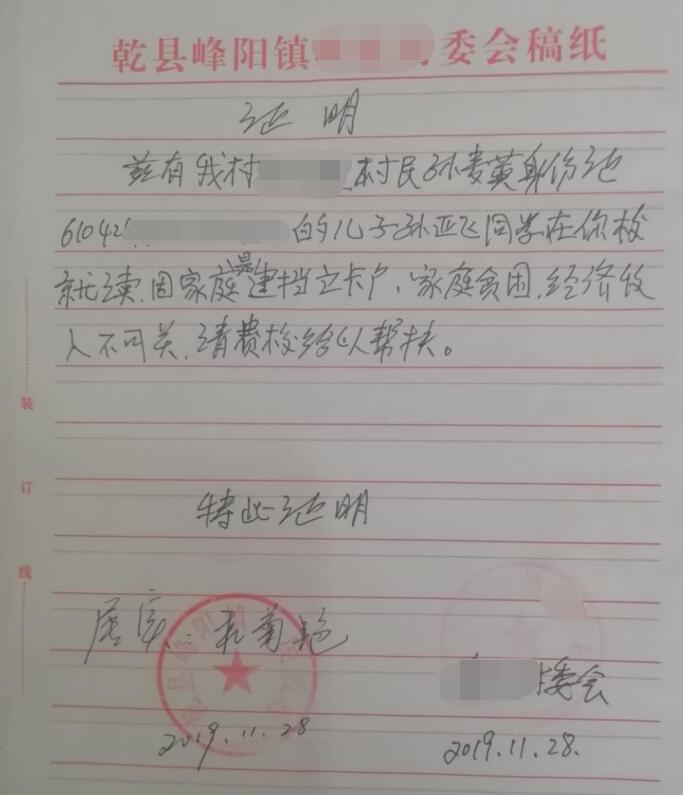 乾县峰阳镇 委会稿纸
证明
兹有我村 村民孙麦英身份证
6104 的儿子孙亚飞同学在你校
就读.因家庭是建档立卡户、家庭贫困.经济收
入不可关.请贵校给以帮扶。
特此证明
属实:
乾县峰阳镇
委会
2019.11.28
2019.11.28.
装
订
线